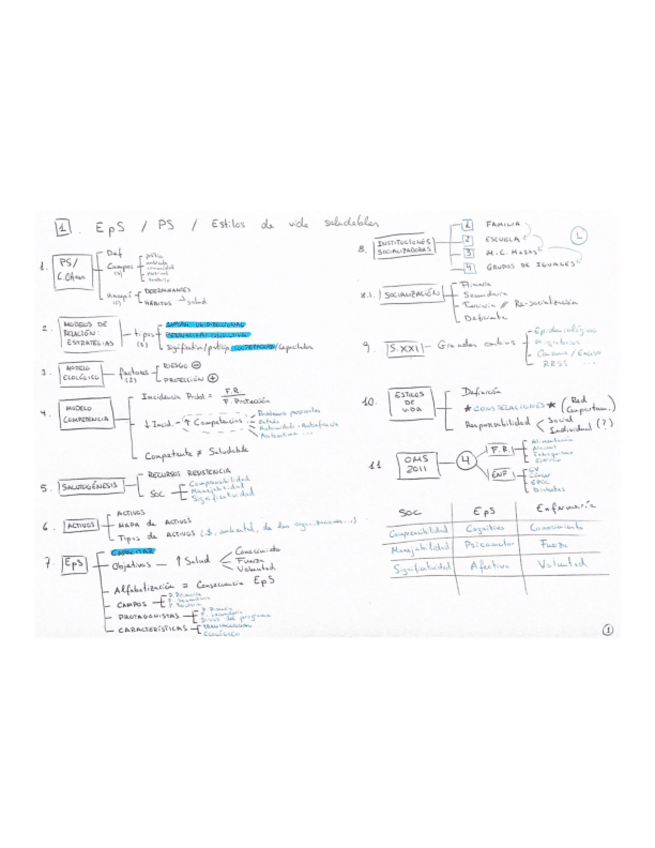 1. EpS / PS / Estilos de vida saludables
1. PS/
Def
Campos
política
ambiente
comunidad
HÁBITOS → Salud
DETERMINANTES
2. MODELOS DE
RELACIÓN:
ESTRATEGIAS
tipos
(3)
3. MODELO
ECOLÓGICO
factores
(2)
RIESGO ⊖
PROTECCIÓN ⊕
4. MODELO
COMPETENCIA
Incidencia Probl = F.R.
F. Protección
↓ Incid. - ↑ Competencias
Competente ≠ Saludable
5. SALUTOGÉNESIS
RECURSOS RESISTENCIA
SOC
Comprensibilidad
Manejabilidad
Significatividad
6. ACTIVOS
ACTIVOS
MAPA de ACTIVOS
Tipos de ACTIVOS ($, ambiental, de las organizaciones...)
7. EpS
CAPACITAR
Objetivos — ↑ Salud
Conocimiento
Fuerza
Voluntad
Alfabetización = Consecuencia EpS
CAMPOS
P. Primaria
P. Secundaria
P. Terciaria
PROTAGONISTAS
P. Primaria
P. Secundaria
CARACTERÍSTICAS
ECOLÓGICO
8. INSTITUCIONES
SOCIALIZADORAS
1 FAMILIA
2 ESCUELA
3 M.C. MASAS
4 GRUPOS DE IGUALES
8.1. SOCIALIZACIÓN
Primaria
Secundaria
Terciaria // Re-socialización
9. S.XXI — Grandes cambios
Epidemiológicos
RRSS ...
10. ESTILOS
DE
VIDA
Definición
(Red
Comportam.)
Responsabilidad
Social
Individual (?)
11 OMS
2011
4
F.R.
Alimentación
Alcohol
Tabaquismo
ENF
CV
Cáncer
EPOC
Diabetes
SOC EpS Enfermería
Comprensibilidad Cognitivo Conocimiento
Manejabilidad Psicomotor Fuerza
Significatividad Afectivo Voluntad
1